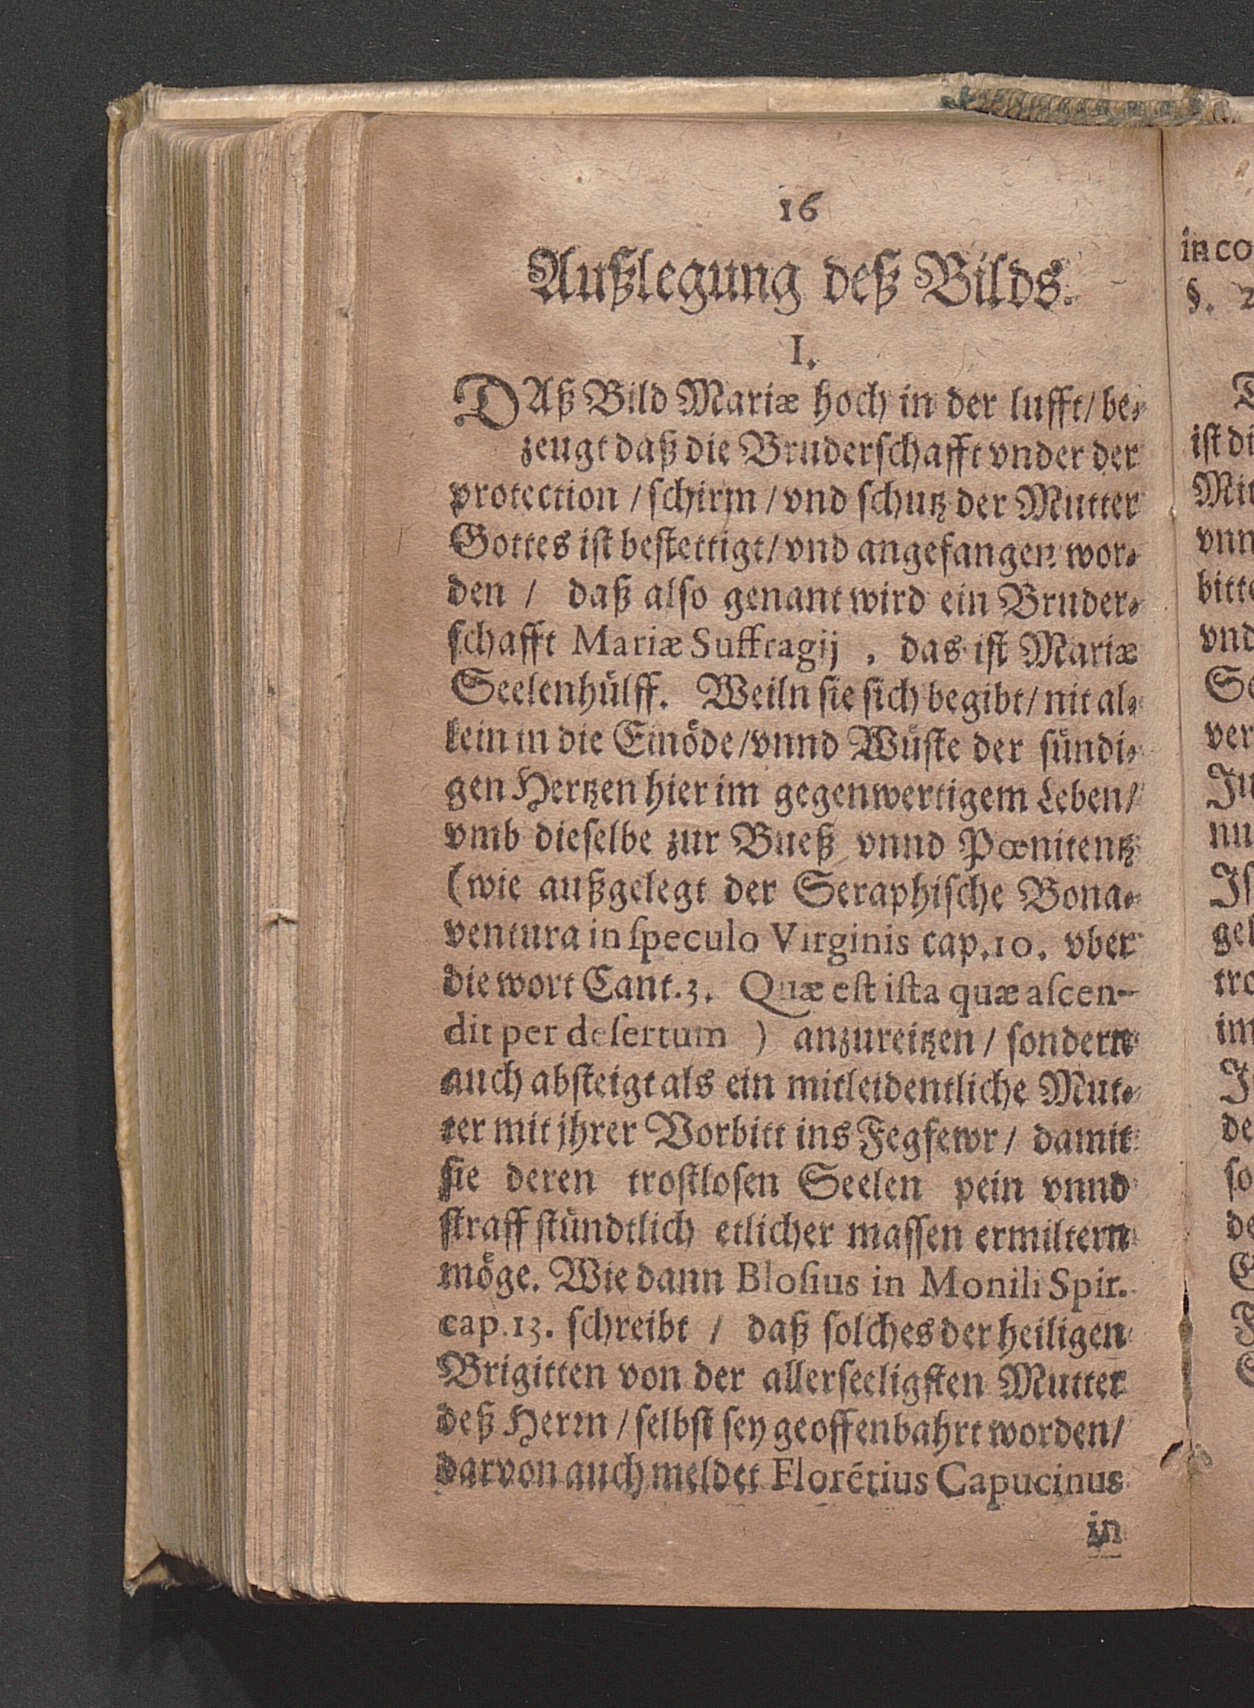 16
Außlegung deß Bilds.
I.
DAß Bild Mariæ hoch in der lufft/ be-
zeugt daß die Bruderschafft vnder der
protection / schirm / vnd schutz der Mutter
Gottes ist bestettigt/ vnd angefangen wor-
den / daß also genant wird ein Bruder-
schafft Mariæ Suffragij , das ist Mariæ
Seelenhülff. Weiln sie sich begibt/ nit al-
lein in die Einöde/vnnd Wüste der sündi-
gen Hertzen hier im gegenwertigem Leben/
vmb dieselbe zur Bueß vnnd Pœnitentz
(wie außgelegt der Seraphische Bona-
ventura in speculo Virginis cap.10. vber
die wort Cant.3. Quæ est ista quæ ascen-
dit per desertum ) anzureitzen / sondern
auch absteigt als ein mitleidentliche Mut-
ter mit jhrer Vorbitt ins Fegfewr/ damit
sie deren trostlosen Seelen pein vnnd
straff stündtlich etlicher massen ermiltern
möge. Wie dann Blosius in Monili Spir.
cap.13. schreibt / daß solches der heiligen
Brigitten von der allerseeligsten Mutter
deß Herrn / selbst sey geoffenbahrt worden/
darvon auch meldet Florētius Capucinus
in
in co
§. 2
ist di
Mit
vnn
bitte
vnd
Se
ver
Ju
nu
Is
gel
tro
im
de
so
de